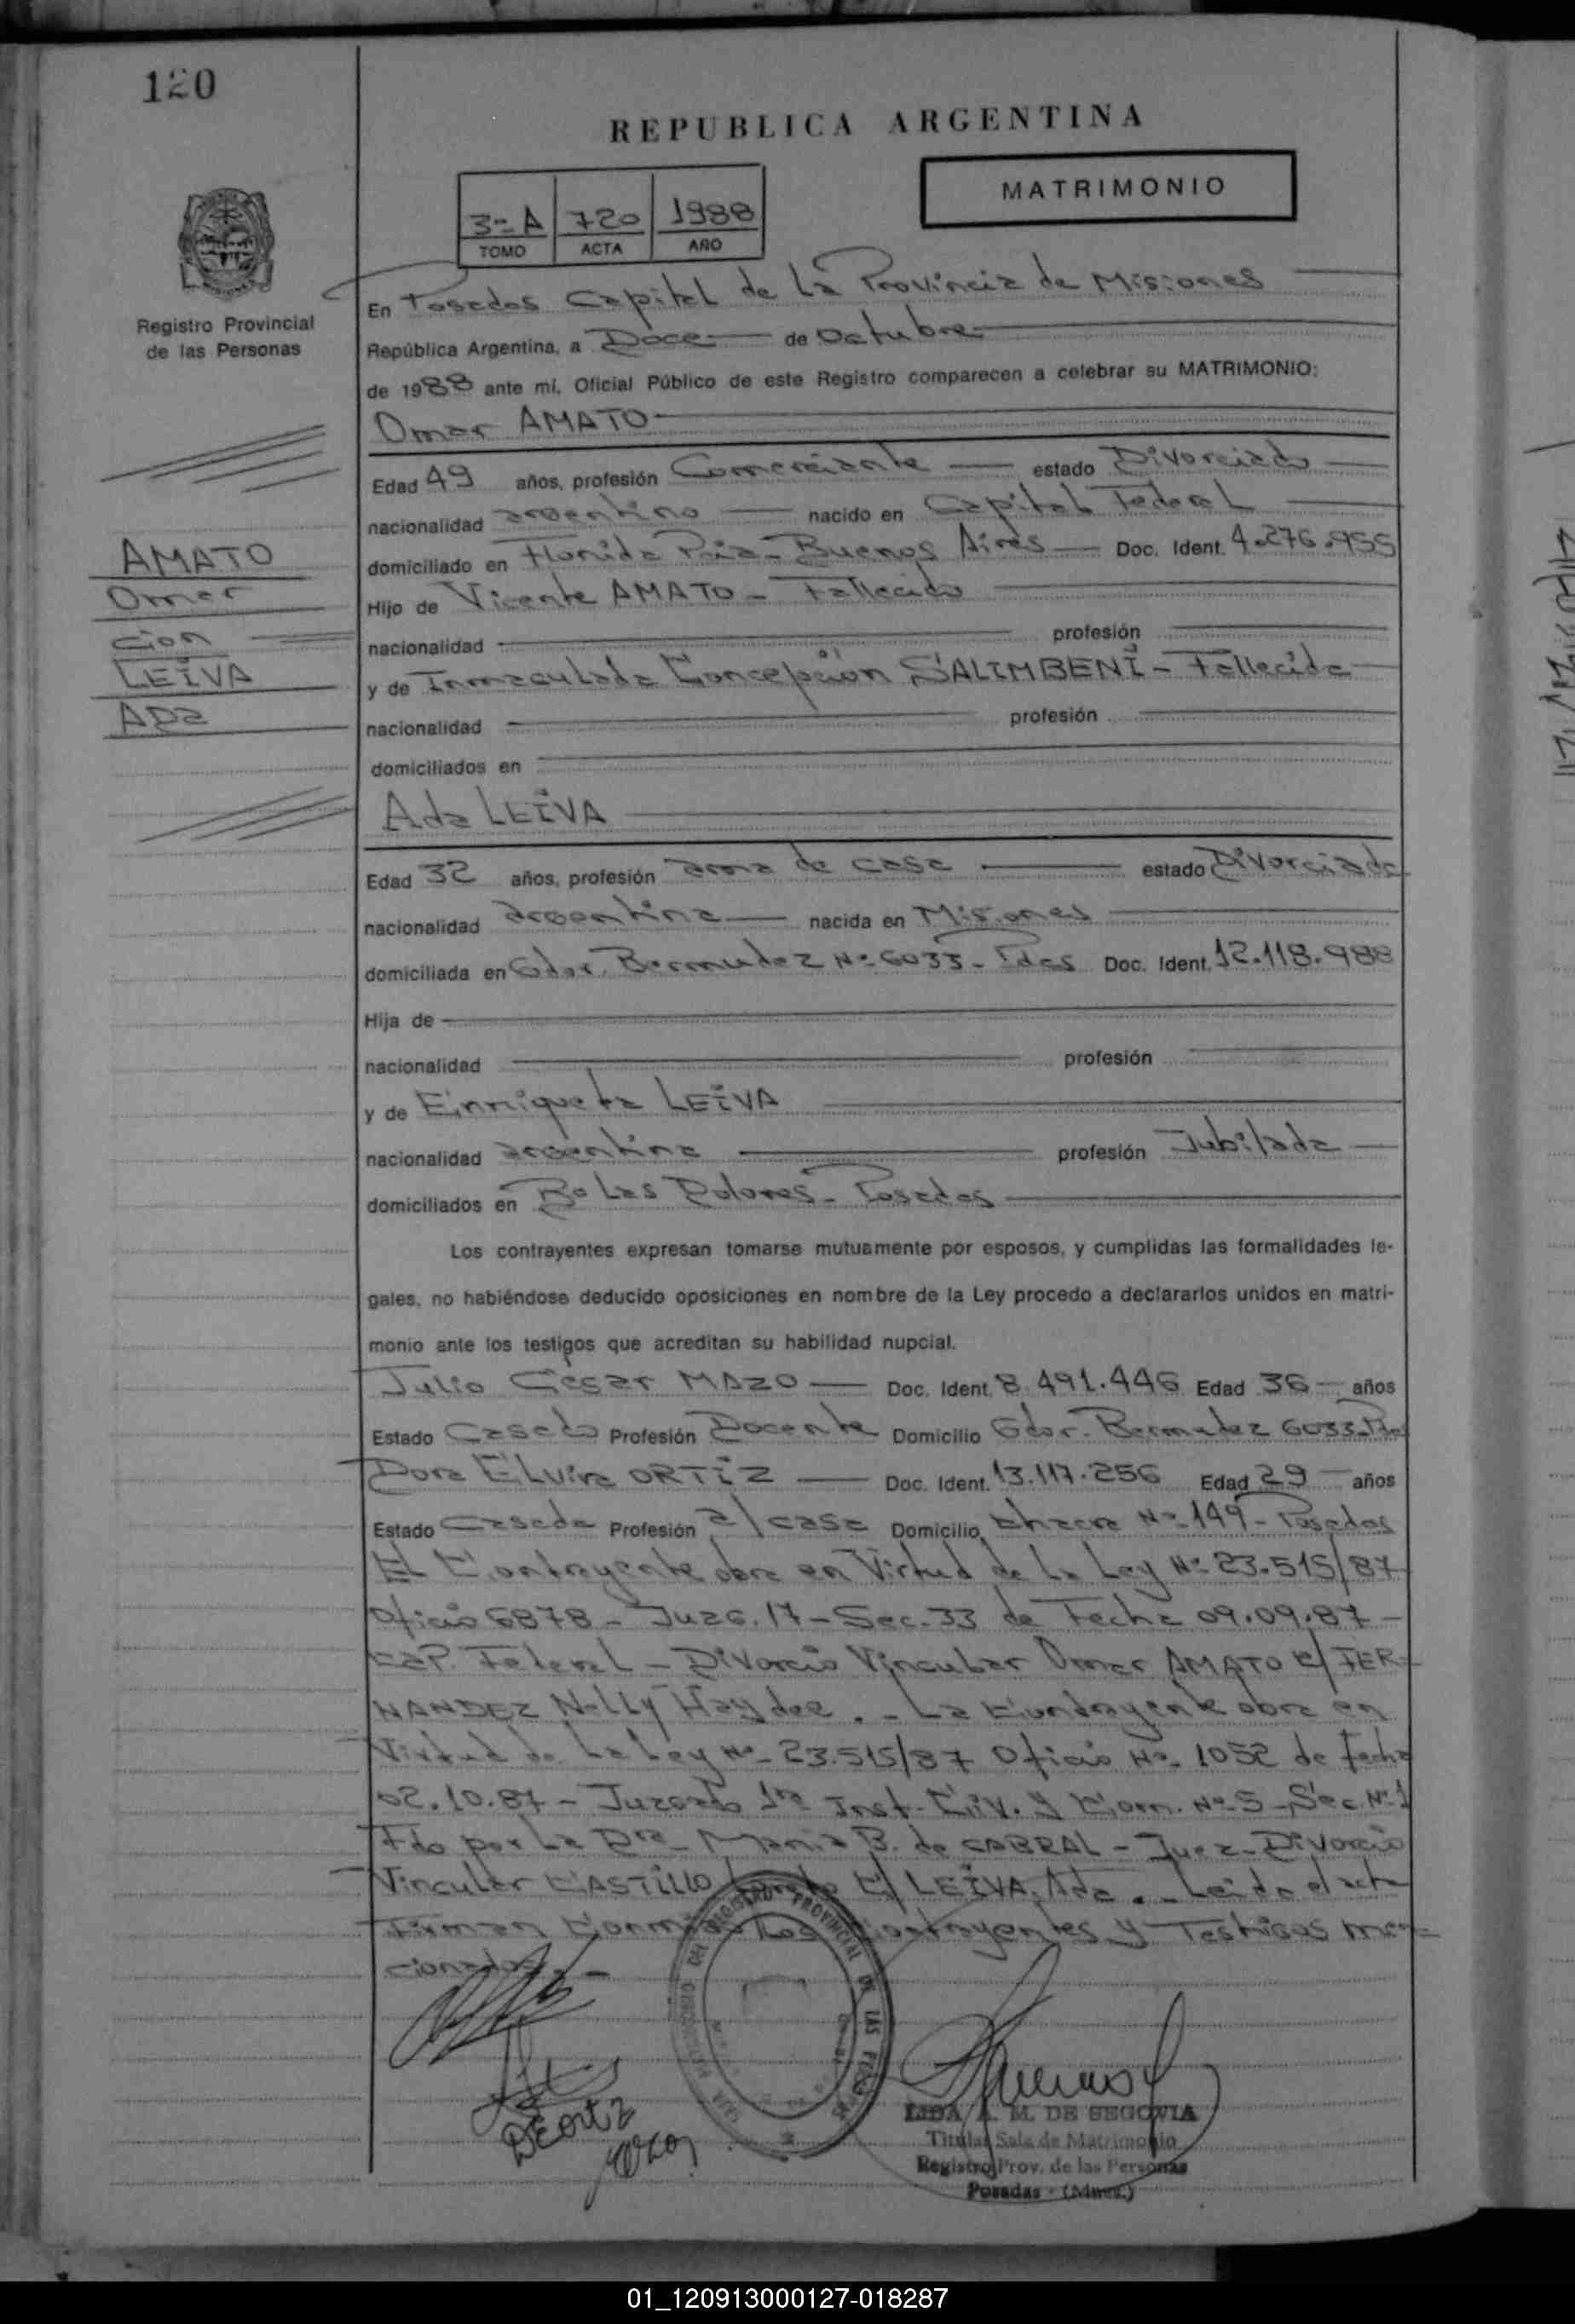 120
REPUBLICA ARGENTINA
MATRIMONIO
3º A 720 1988
TOMO ACTA AÑO
Registro Provincial
de las Personas
En Posadas Capital de La Provincia de Misiones
República Argentina, a Doce de Octubre
de 1988 ante mí, Oficial Público de este Registro comparecen a celebrar su MATRIMONIO:
Omar AMATO
Edad 49 años, profesión Comerciante estado Divorciado
nacionalidad argentino nacido en Capital Federal
domiciliado en Florida Pcia- Buenos Aires Doc. Ident. 4.276.955
Hijo de Vicente AMATO - Fallecido
nacionalidad profesión
y de Inmaculada Concepción SALIMBENI - Fallecida
nacionalidad profesión
domiciliados en
AMATO
Omar
cion
LEIVA
ADa
Ada LEIVA
Edad 32 años, profesión ama de casa estado Divorciada
nacionalidad argentina nacida en Misiones
domiciliada en Gdor. Bermudez Nº 6033 - Pdas Doc. Ident. 12.118.988
Hija de
nacionalidad profesión
y de Enriqueta LEIVA
nacionalidad argentina profesión Jubilada
domiciliados en Bo Las Dolores - Posadas
Los contrayentes expresan tomarse mutuamente por esposos, y cumplidas las formalidades le-
gales, no habiéndose deducido oposiciones en nombre de la Ley procedo a declararlos unidos en matri-
monio ante los testigos que acreditan su habilidad nupcial.
Julio César MAZO Doc. Ident. 8.491.446 Edad 36 años
Estado Casado Profesión Docente Domicilio Gdor. Bermudez 6033 Pdas
Dora Elvira ORTIZ Doc. Ident. 13.117.256 Edad 29 años
Estado Casada Profesión a/casa Domicilio Chacra Nº 149 - Posadas
El Contrayente obra en Virtud de La Ley Nº 23.515/87
Oficio 6878 - Juzg. 17 - Sec. 33 de Fecha 09.09.87 -
Cap. Federal - Divorcio Vincular Omar AMATO c/ FER-
NANDEZ Nelly Haydee . - La Contrayente obra en
Virtud de La Ley Nº 23.515/87 Oficio Nº 1052 de fecha
02.10.87 - Juzgado 1ra Inst. Civ. y Com. Nº 5 - Sec. Nº 1
Fdo por La Dra Maria B. de CABRAL - Juez - Divorcio
Vincular CASTILLO C/ LEIVA, Ada . - Leida el acta
Firman Conmigo Los Contrayentes y Testigos men-
cionados . -
DEortiz
OFICINA DEL REGISTRO PROVINCIAL DE LAS PERSONAS
LIDA A. M. DE SEGOVIA
Titular Sala de Matrimonio
Registro Prov. de las Personas
Posadas - (Mnes.)
01_120913000127-018287